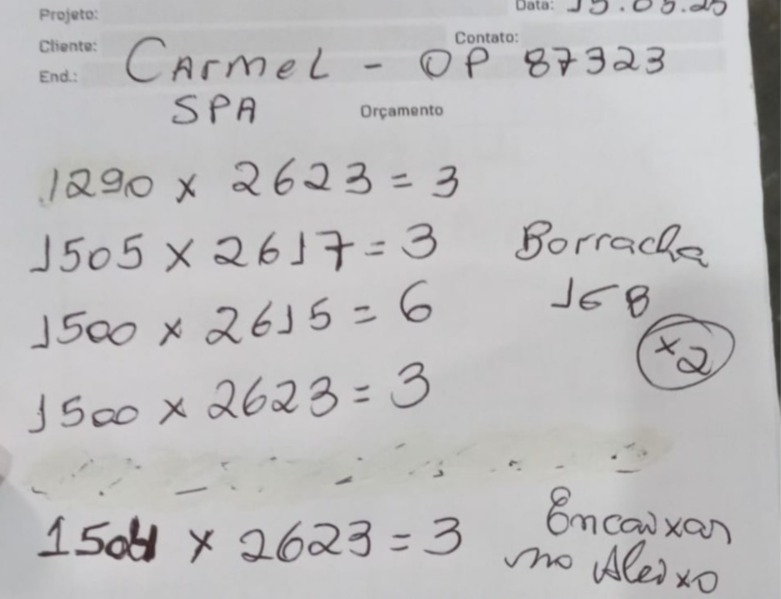 Projeto:
Data: 15.05.25
Cliente:
Contato:
CArmeL - OP 87323
End.:
SPA
Orçamento
1290 x 2623 = 3
1505 x 2617 = 3
Borracha
1500 x 2615 = 6
168
x2
1500 x 2623 = 3
x 2623 = 3
Encaixar
no Aleixo